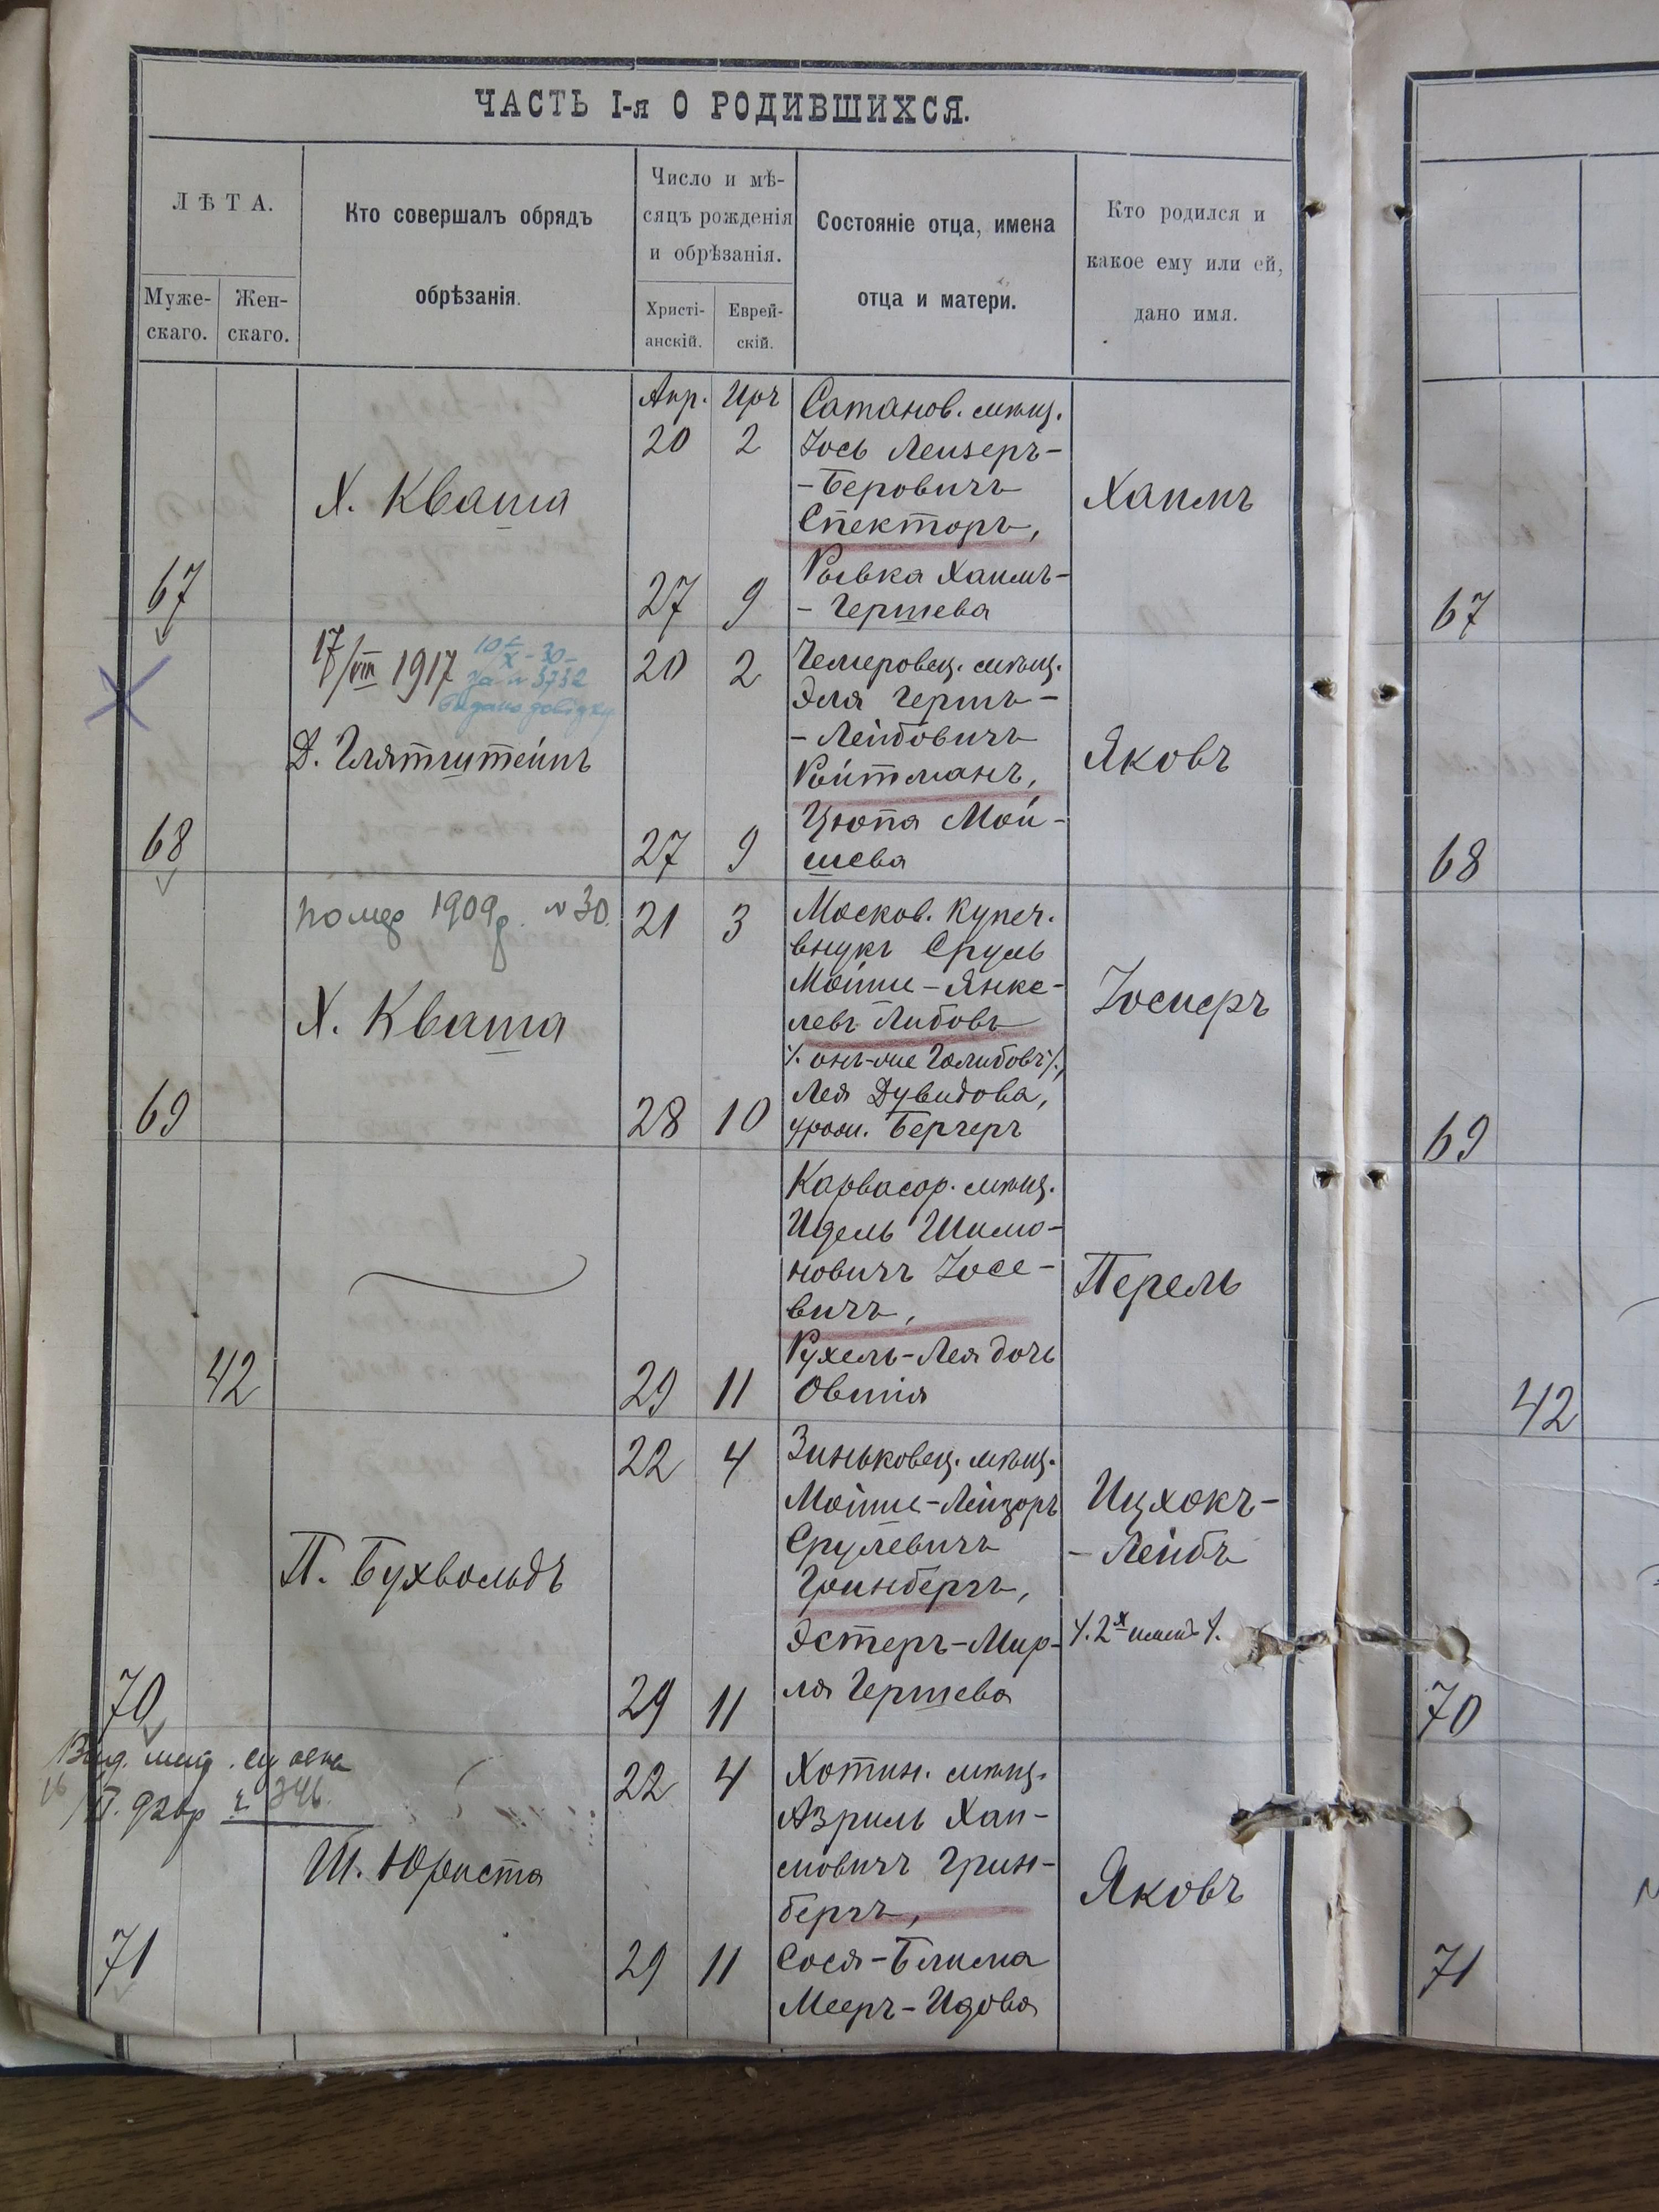 ЧАСТЬ I-я О РОДИВШИХСЯ.
ЛѢТА.
Муже-
скаго.
Жен-
скаго.
Кто совершалъ обрядъ
обрѣзанія.
Число и мѣ-
сяцъ рожденія
и обрѣзанія.
Христі-
анскій.
Еврей-
скій.
Состояніе отца, имена
отца и матери.
Кто родился и
какое ему или ей,
дано имя.
67
Х. Кваша
Апр. Иръ
20 2
27 9
Сатанов. мѣщ.
Іось Лейзеръ-
-Беровичъ
Спекторъ,
Рывка Хаимъ-
-Гершева
Хаимъ
67
17/VIII 1917
10/X-30-
за № 3732
видано довідку
68
Д. Глятштейнъ
20 2
27 9
Чемеровец. мѣщ.
Эля Гершъ-
-Лейбовичъ
Ройтманъ,
Цюпа Мой-
шева
Яковъ
68
1909 № 30.
69
Х. Кваша
21 3
28 10
Москов. купеч.
внукъ Сруль
Мойше-Янке-
левъ Либовъ
/. онъ-же Голибовъ /.,
Лея Дувидова,
урож. Бергеръ
Іосиеръ
69
42
29 11
Карвасор. мѣщ.
Идель Шимо-
новичъ Іосе-
вичъ,
Рухель-Лея дочь
Овшія
Перель
42
70
П. Бухвольдъ
22 4
29 11
Зиньковец. мѣщ.
Мойше-Лейзоръ
Срулевичъ
Гринбергъ,
Эстеръ-Мир-
ля Гершева
Ицхокъ-
-Лейбъ
/. 2х именъ /.
70
346.
71
Ш. Юриста
22 4
29 11
Хотин. мѣщ.
Азриль Хаи-
мовичъ Грин-
бергъ,
Сося-Блима
Мееръ-Идова
Яковъ
71